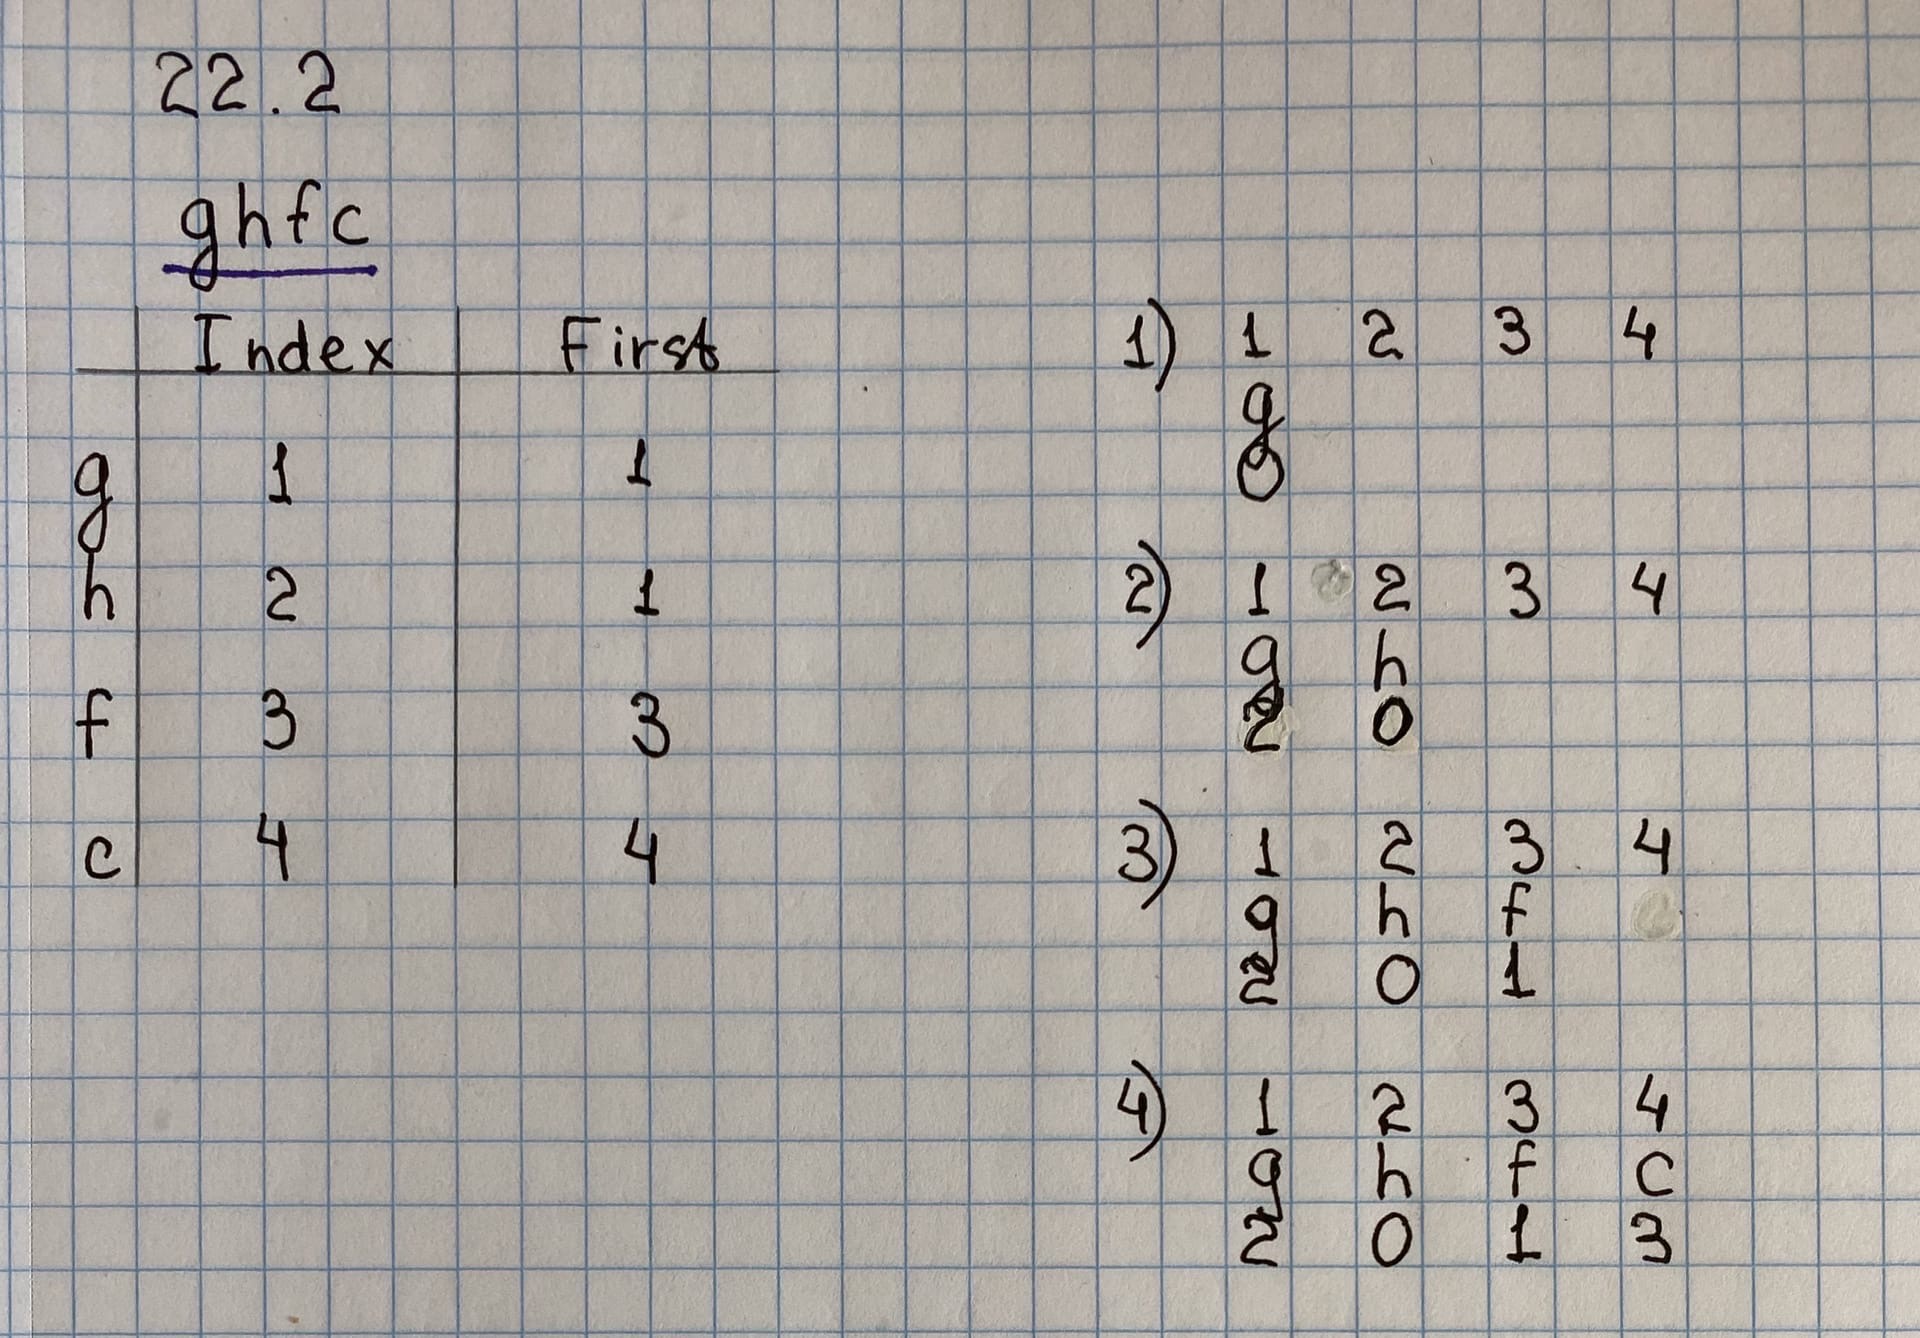 22.2
ghfc
Index First
g 1 1
h 2 1
f 3 3
c 4 4
1) 1 2 3 4
g
0
2) 1 2 3 4
g h
2 0
3) 1 2 3 4
g h f
2 0 1
4) 1 2 3 4
g h f c
2 0 1 3